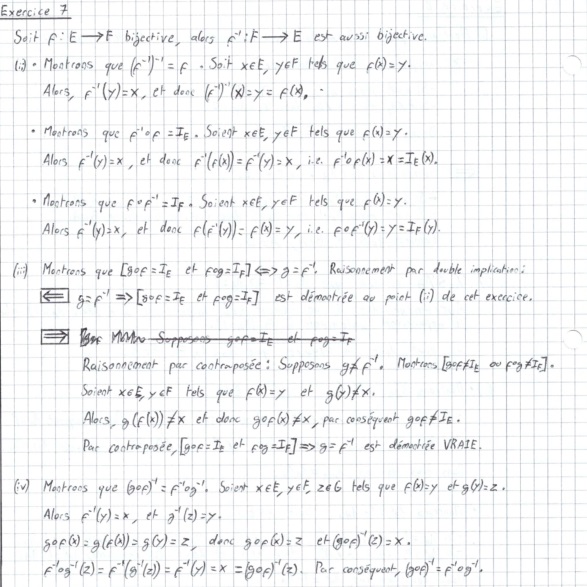 Exercice 7
Soit f : E → F bijective, alors f⁻¹ : F → E est aussi bijective.
(ii) • Montrons que (f⁻¹)⁻¹ = f . Soit x∈E, y∈F tels que f(x) = y.
Alors, f⁻¹(y) = x, et donc (f⁻¹)⁻¹(x) = y = f(x).
• Montrons que f⁻¹∘f = I_E . Soient x∈E, y∈F tels que f(x) = y.
Alors f⁻¹(y) = x, et donc f⁻¹(f(x)) = f⁻¹(y) = x, i.e. f⁻¹∘f(x) = x = I_E(x).
• Montrons que f∘f⁻¹ = I_F . Soient x∈E, y∈F tels que f(x) = y.
Alors f⁻¹(y) = x, et donc f(f⁻¹(y)) = f(x) = y, i.e. f∘f⁻¹(y) = y = I_F(y).
(iii) Montrons que [g∘f = I_E et f∘g = I_F] ⟺ g = f⁻¹. Raisonnement par double implication :
⟸ g = f⁻¹ ⟹ [g∘f = I_E et f∘g = I_F] est démontrée au point (ii) de cet exercice.
⟹ Supposons g∘f = I_E et f∘g = I_F
Raisonnement par contraposée : Supposons g ≠ f⁻¹. Montrons [g∘f ≠ I_E ou f∘g ≠ I_F].
Soient x∈E, y∈F tels que f(x) = y et g(y) ≠ x.
Alors, g(f(x)) ≠ x et donc g∘f(x) ≠ x, par conséquent g∘f ≠ I_E.
Par contraposée, [g∘f = I_E et f∘g = I_F] ⟹ g = f⁻¹ est démontrée VRAIE.
(iv) Montrons que (g∘f)⁻¹ = f⁻¹∘g⁻¹. Soient x∈E, y∈F, z∈G tels que f(x) = y et g(y) = z.
Alors f⁻¹(y) = x, et g⁻¹(z) = y.
g∘f(x) = g(f(x)) = g(y) = z, donc g∘f(x) = z et (g∘f)⁻¹(z) = x.
f⁻¹∘g⁻¹(z) = f⁻¹(g⁻¹(z)) = f⁻¹(y) = x = (g∘f)⁻¹(z). Par conséquent, (g∘f)⁻¹ = f⁻¹∘g⁻¹.